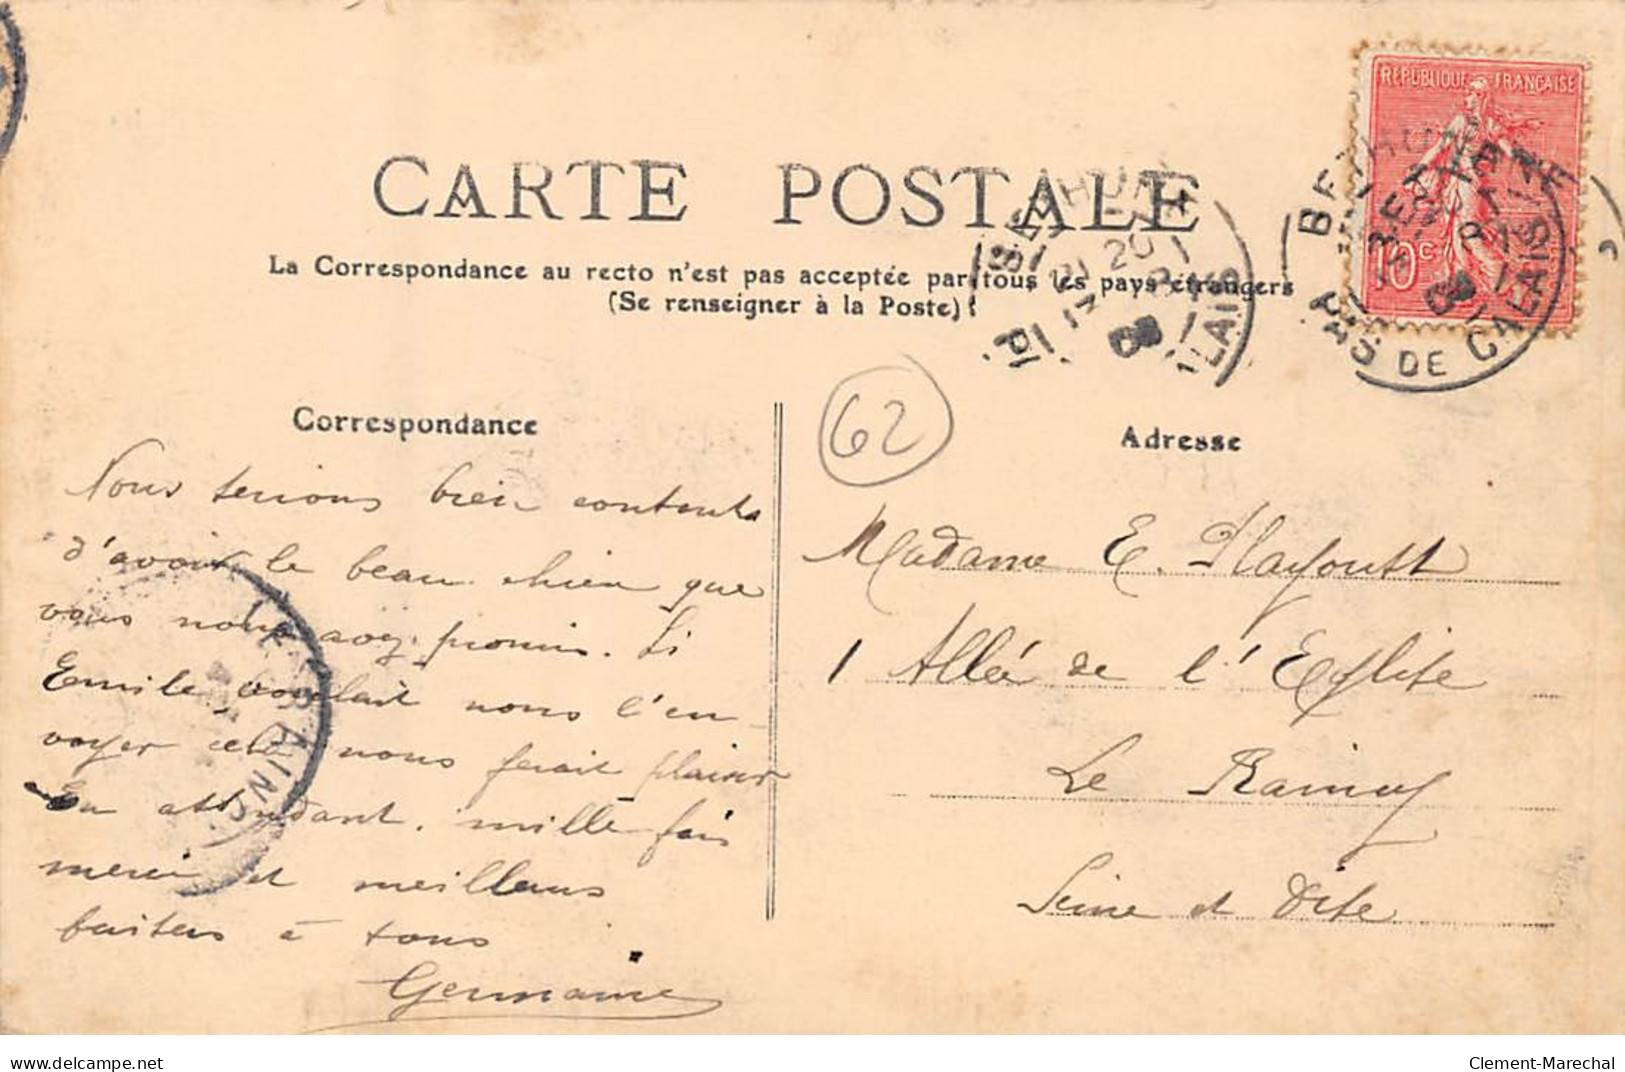 RÉPUBLIQUE FRANÇAISE
10c
CARTE POSTALE
La Correspondance au recto n'est pas acceptée par tous les pays étrangers
(Se renseigner à la Poste)
BETHUNE
PAS DE CALAIS
BETHUNE
20
08
62
Correspondance
Nous serions bien contents
d'avoir le beau chien que
vous nous avez promis. Si
Emile voulait nous l'en-
voyer cela nous ferait plaisir
En attendant, mille fois
merci et meilleurs
baisers à tous
Germaine
LE RAINCY
Adresse
Madame E.
1 Allée de l'Eglise
Le Raincy
Seine et Oise
delcampe.net
Clement-Marechal